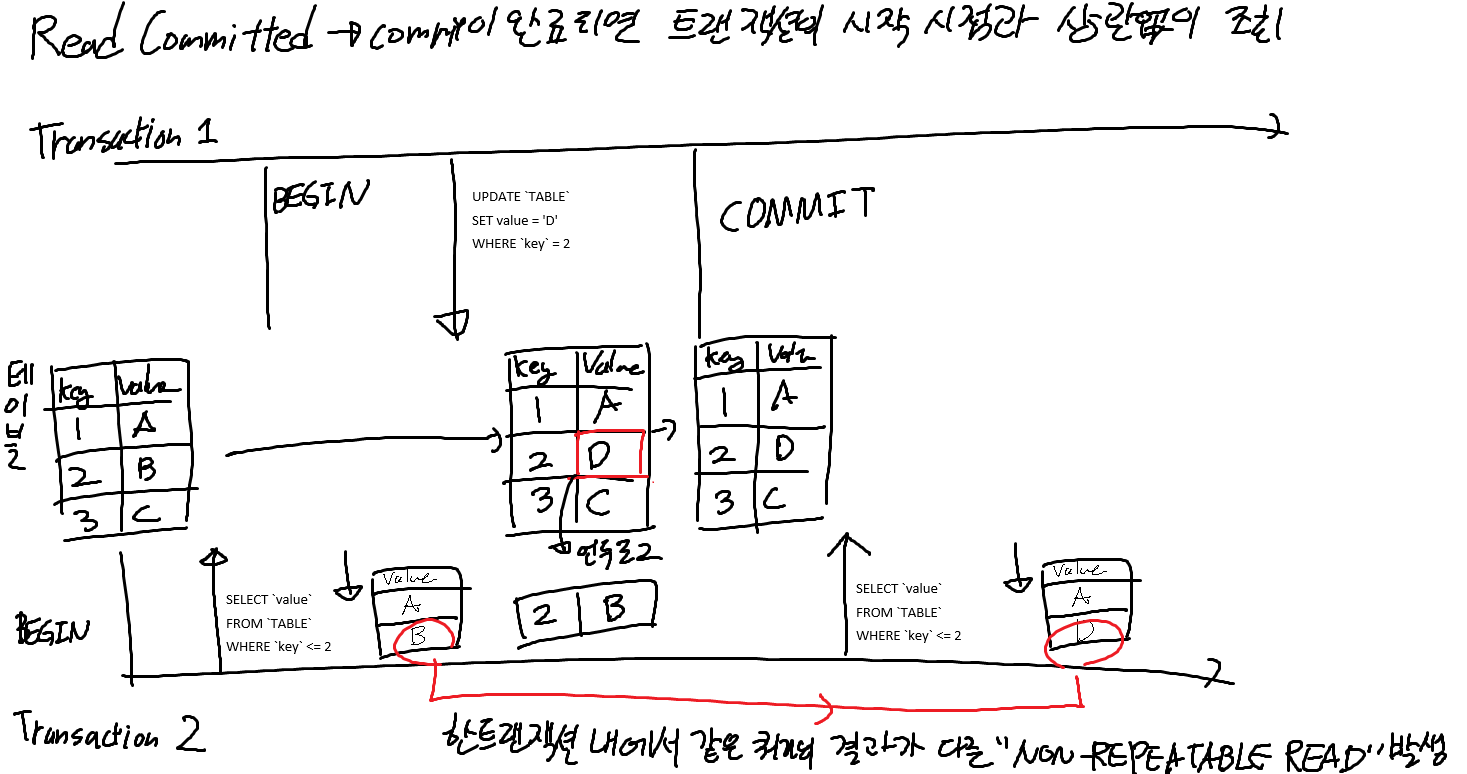 Read Committed → commit이 완료되면 트랜잭션의 시작 시점과 상관없이 조회
Transaction 1
BEGIN
UPDATE `TABLE`
SET value = 'D'
WHERE `key` = 2
COMMIT
테이블
key Value
1 A
2 B
3 C
key Value
1 A
2 D
3 C
key Value
1 A
2 D
3 C
언두로그
2 B
BEGIN
SELECT `value`
FROM `TABLE`
WHERE `key` <= 2
Value
A
B
SELECT `value`
FROM `TABLE`
WHERE `key` <= 2
Value
A
D
Transaction 2
한 트랜잭션 내에서 같은 쿼리의 결과가 다른 "NON-REPEATABLE READ" 발생